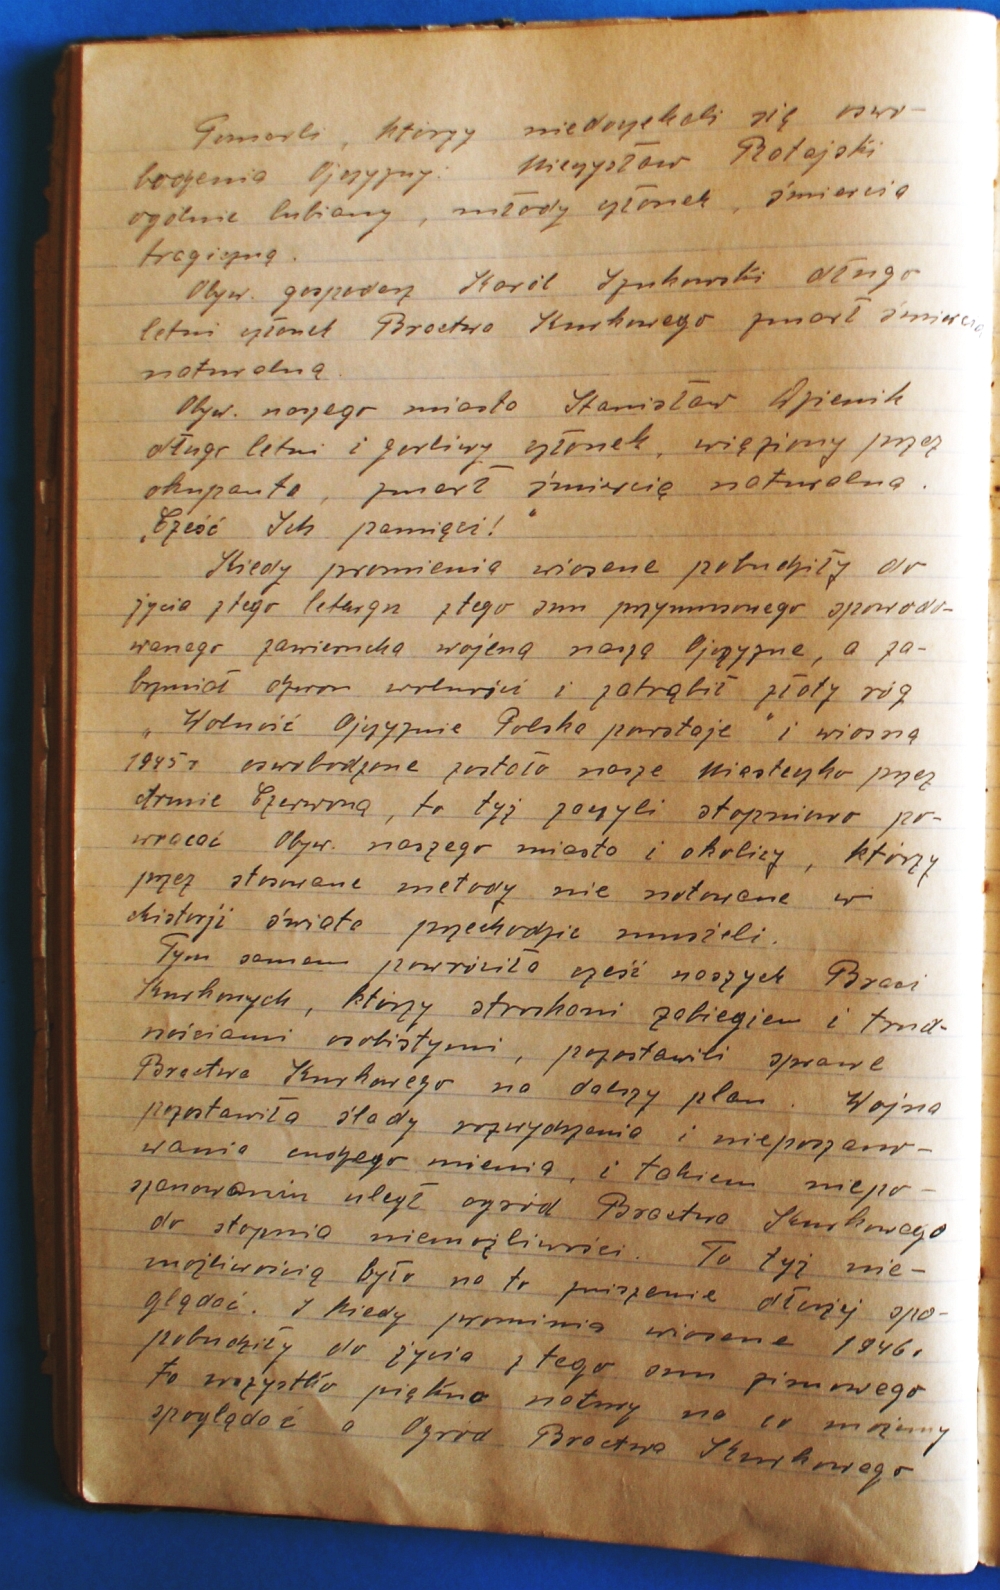 Pomarli, którzy niedoczekali się oswo-
bodzenia Ojczyzny: Mieczysław Ratajski
ogólnie lubiany, młody członek, śmiercią
tragiczną.
Obyw. gospodarz Karól Szukowski długo
letni członek Bractwa Kurkowego zmarł śmiercią
naturalną.
Obyw. naszego miasta Stanisław
długo letni i gorliwy członek, więziony przez
okupanta, zmarł śmiercią naturalną.
„Cześć Ich pamięci!"
Kiedy promienia wiosene pobudziły do
życia ztego letargu ztego snu przymusonego spowodo-
wanego zawierucha wojeną naszą Ojczyzne, a za-
brzmiał dzwon wolności i zatrąbił złoty róg
„Wolność Ojczyznie Polska powstaje" i wiosną
1945 r oswobodzone zostało nasze Miasteczko przez
Armie Czerwoną, to tyż zaczyli stopniowo po-
wracać Obyw. naszego miasta i okolicy, którzy
przez stosowane metody nie notowane w
chistorji świata przechodzic musieli.
Tym samem powróciła cześć naszych Braci
Kurkowych, którzy stroskani zabiegiem i trud-
nościami osobistymi, pozostawili sprawe
Bractwa Kurkowego na dalszy plan. Wojna
pozostawiła ślady rozwydrzenia i nieposzano-
wania cudzego mienia, i takiem niepo-
szanowaniu uległ ogród Bractwa Kurkowego
do stopnia niemożliwości. To tyż nie-
możliwością było na to zniszenie dłużej spo-
glądać. I kiedy prominia wiosene 1946 r
pobudziły do życia z tego snu zimowego
to wszystko piękno natury na co możemy
spoglądać a Ogród Bractwa Kurkowego